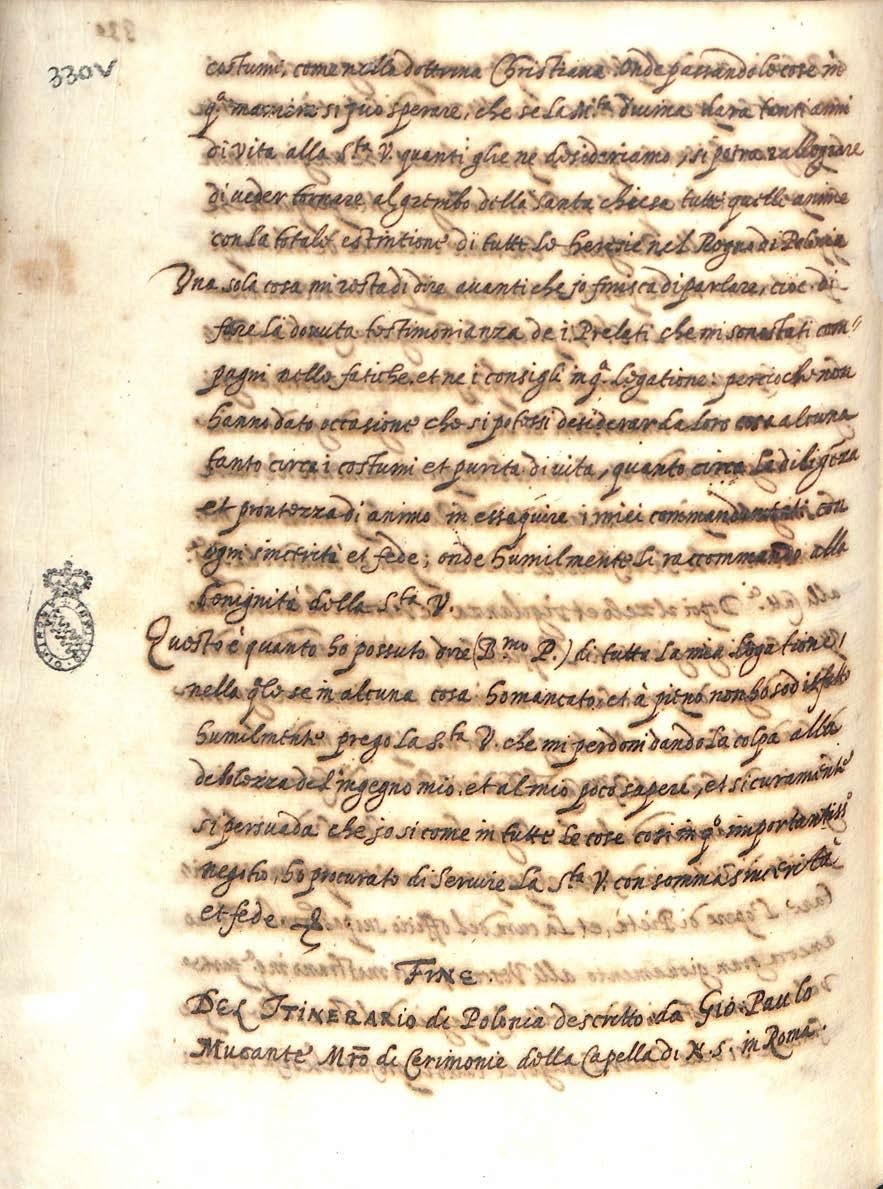 330v
costumi, come nella dottrina Christiana. Onde passando le cose in
q.a maniera si può sperare, che se la M.ta divina dara tanti anni
di vita alla S.ta V. quanti gliene desideriamo, si potra rallegrare
di veder tornare al grembo della santa chiesa tutte quelle anime
con la totale estintione di tutte le heresie nel Regno di Polonia
Una sola cosa mi resta di dire avanti che jo finisca di parlare, cioè di
fare la dovuta testimonianza de i Prelati che mi sono stati com=
pagni nelle fatiche, et ne i consigli in q.a legatione: percioche non
hanno dato occasione che si potessi desiderar da loro cosa alcuna
tanto circa i costumi et purita di vita, quanto circa la diligenza
et prontezza di animo in essequire i miei commandamenti con
ogni sincerità et fede; onde humilmente li raccommando alla
benignità della S.ta V.
Questo è quanto ho possuto dire (B.mo P.) di tutta la mia legatione,
nella q.le se in alcuna cosa ho mancato, et à pieno non ho sodisfatto
humilmente prego la S.ta V. che mi perdoni dando la colpa alla
debolezza del'ingegno mio, et al mio poco sapere, et sicuramente
si persuada che jo si come in tutte le cose cosi in q.o importantiss.o
negotio, ho procurato di servire la S.ta V. con somma sincerità
et fede.
FINE
DEL ITINERARIO di Polonia descritto da Gio: Paulo
Mucante Mrõ di Cerimonie della Capella di N. S. in Roma.